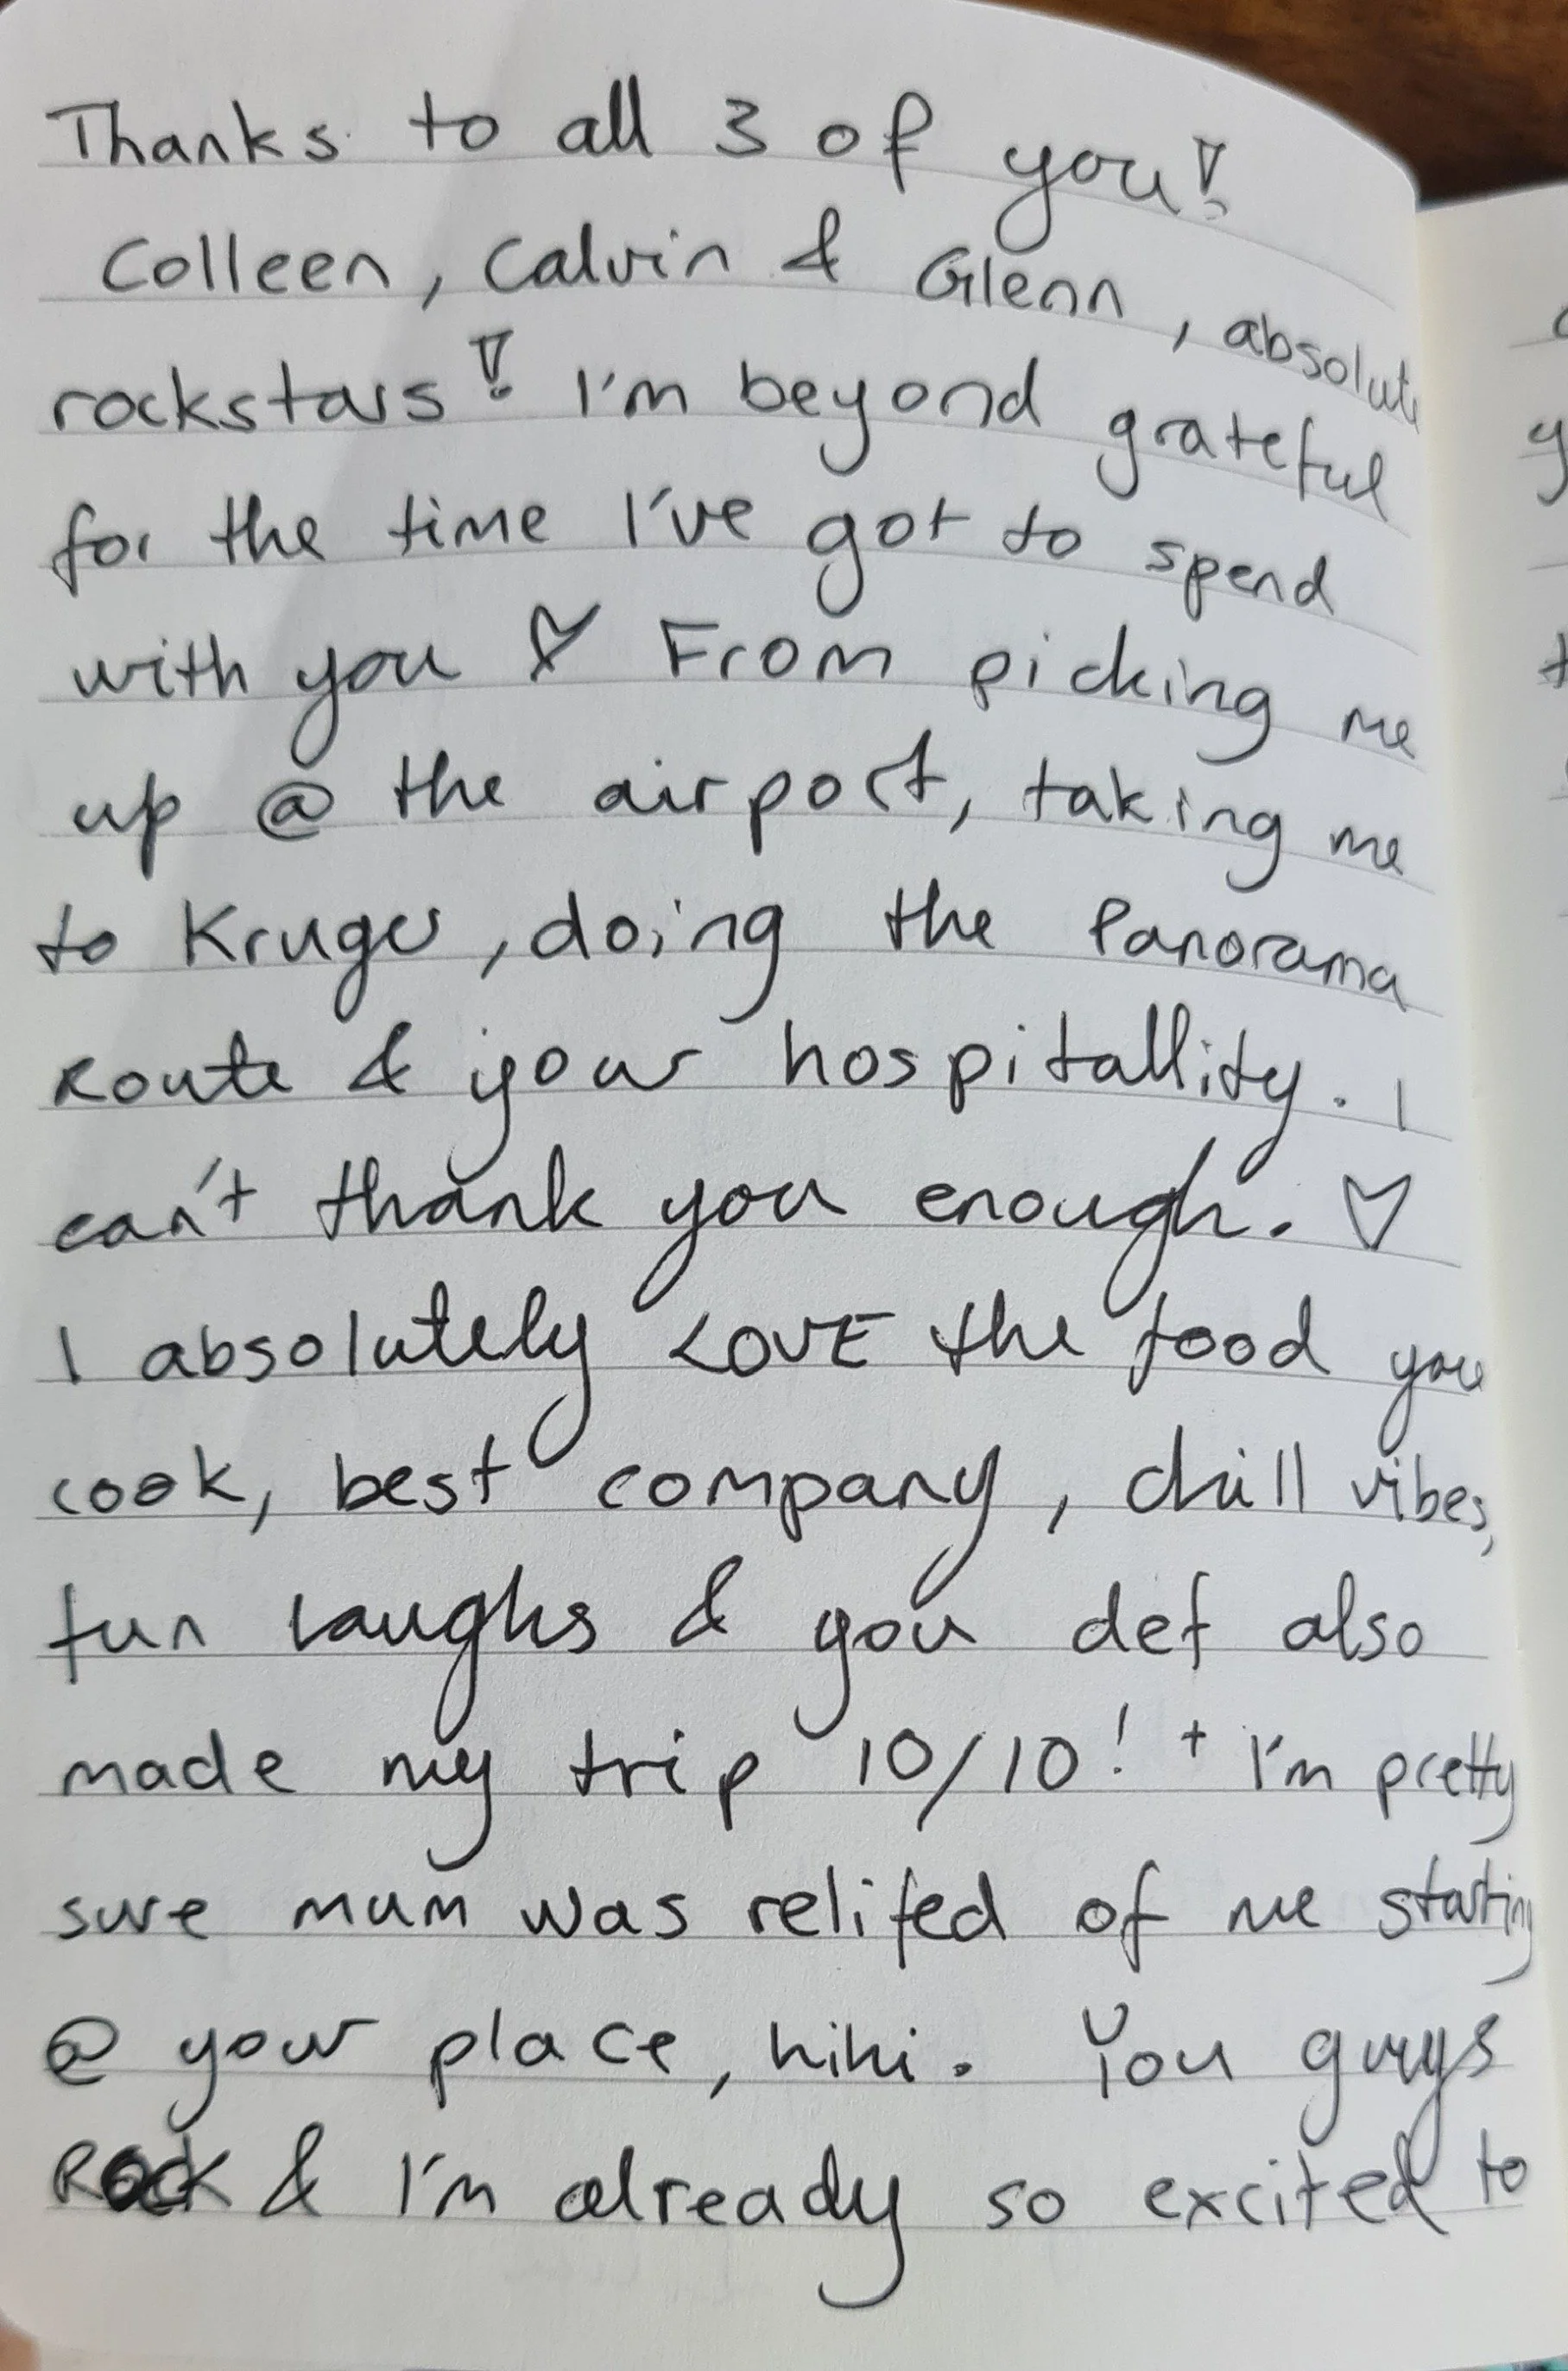 Thanks to all 3 of you!
Colleen, Calvin & Glenn, absolute
rockstars! I'm beyond grateful
for the time I've got to spend
with you ♡ From picking me
up @ the airport, taking me
to Kruger, doing the Panorama
Route & your hospitallity. I
can't thank you enough. ♡
I absolutely LOVE the food you
cook, best company, chill vibes,
fun laughs & you def also
made my trip 10/10! + I'm pretty
sure mum was relifed of me starting
@ your place, hihi. You guys
Rock & I'm already so excited to